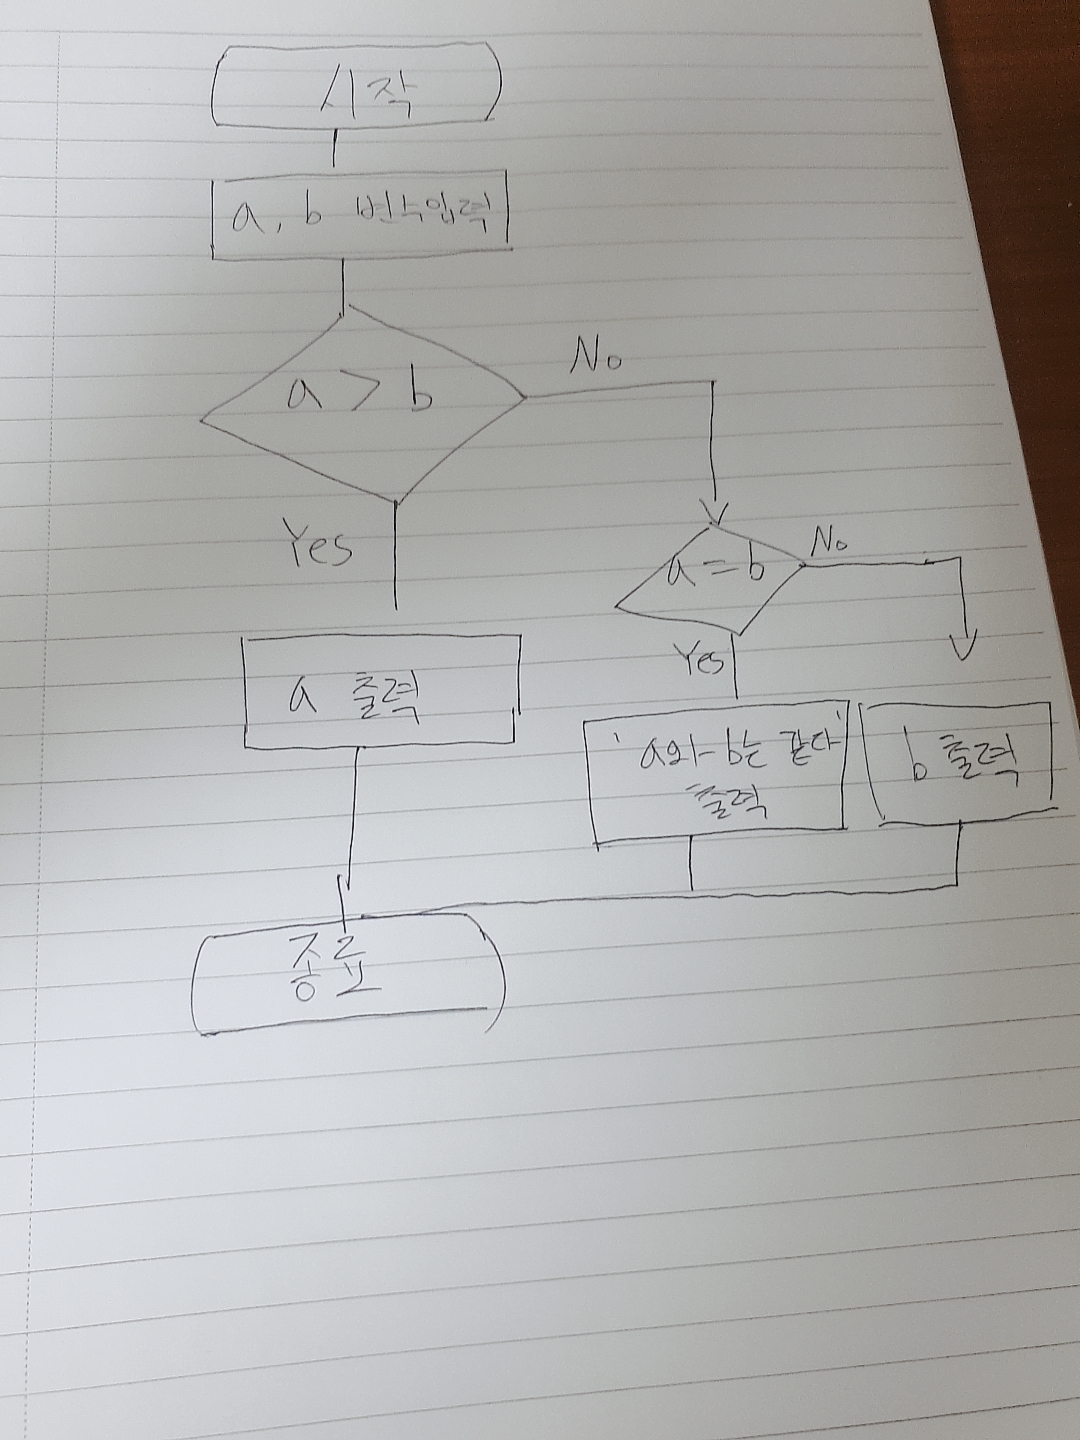 시작
a, b 변수입력
a > b
No
Yes
a = b
No
Yes
a 출력
'a와 b는 같다'
출력
b 출력
종료